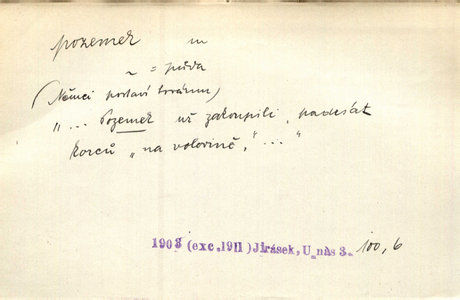 pozemek m
~ = půda
(Němci postaví továrnu)
„... Pozemek už zakoupili, padesát
korců „na volovině," ..."
1903 (exc. 1911) Jirásek, U nás 3. 100, 6